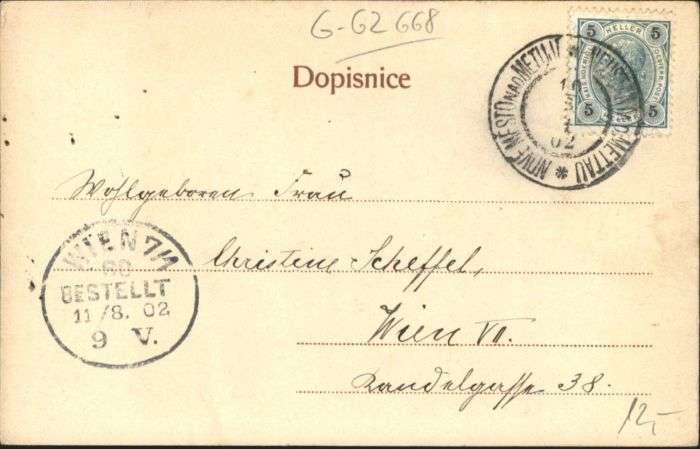 G-G2 668
Dopisnice
5 HELLER 5
5 5
NOVÉ MĚSTO NAD METUJÍ * NEUSTADT A.D. METTAU *
02
Wohlgeboren Frau
Christine Scheffel,
Wien VII.
Kandelgasse 38.
WIEN 7/1
60
BESTELLT
11/8. 02
9 V.
12,-